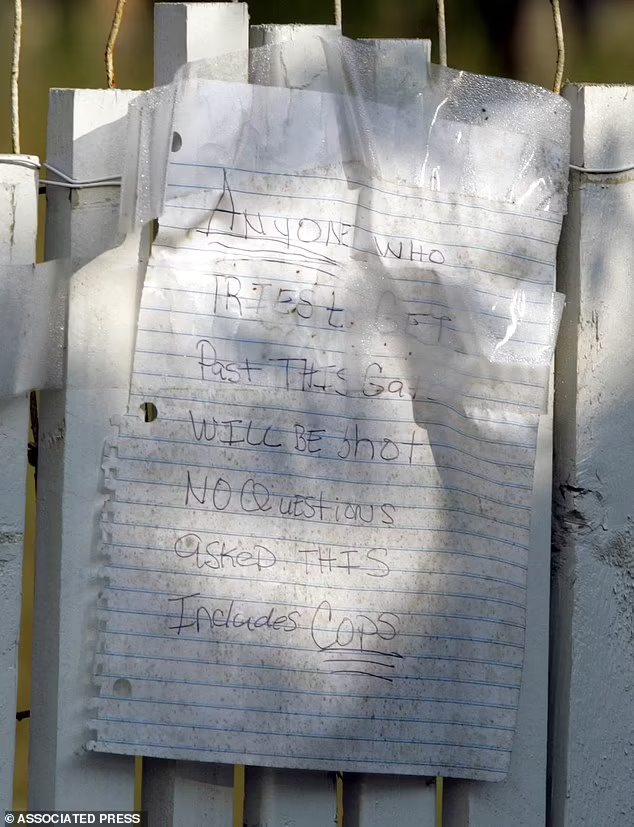 ANYONE WHO
TRIES t. GET
Past THIS Ga
WILL BE shot
NO Questions
asked THIS
Includes Cops
© ASSOCIATED PRESS